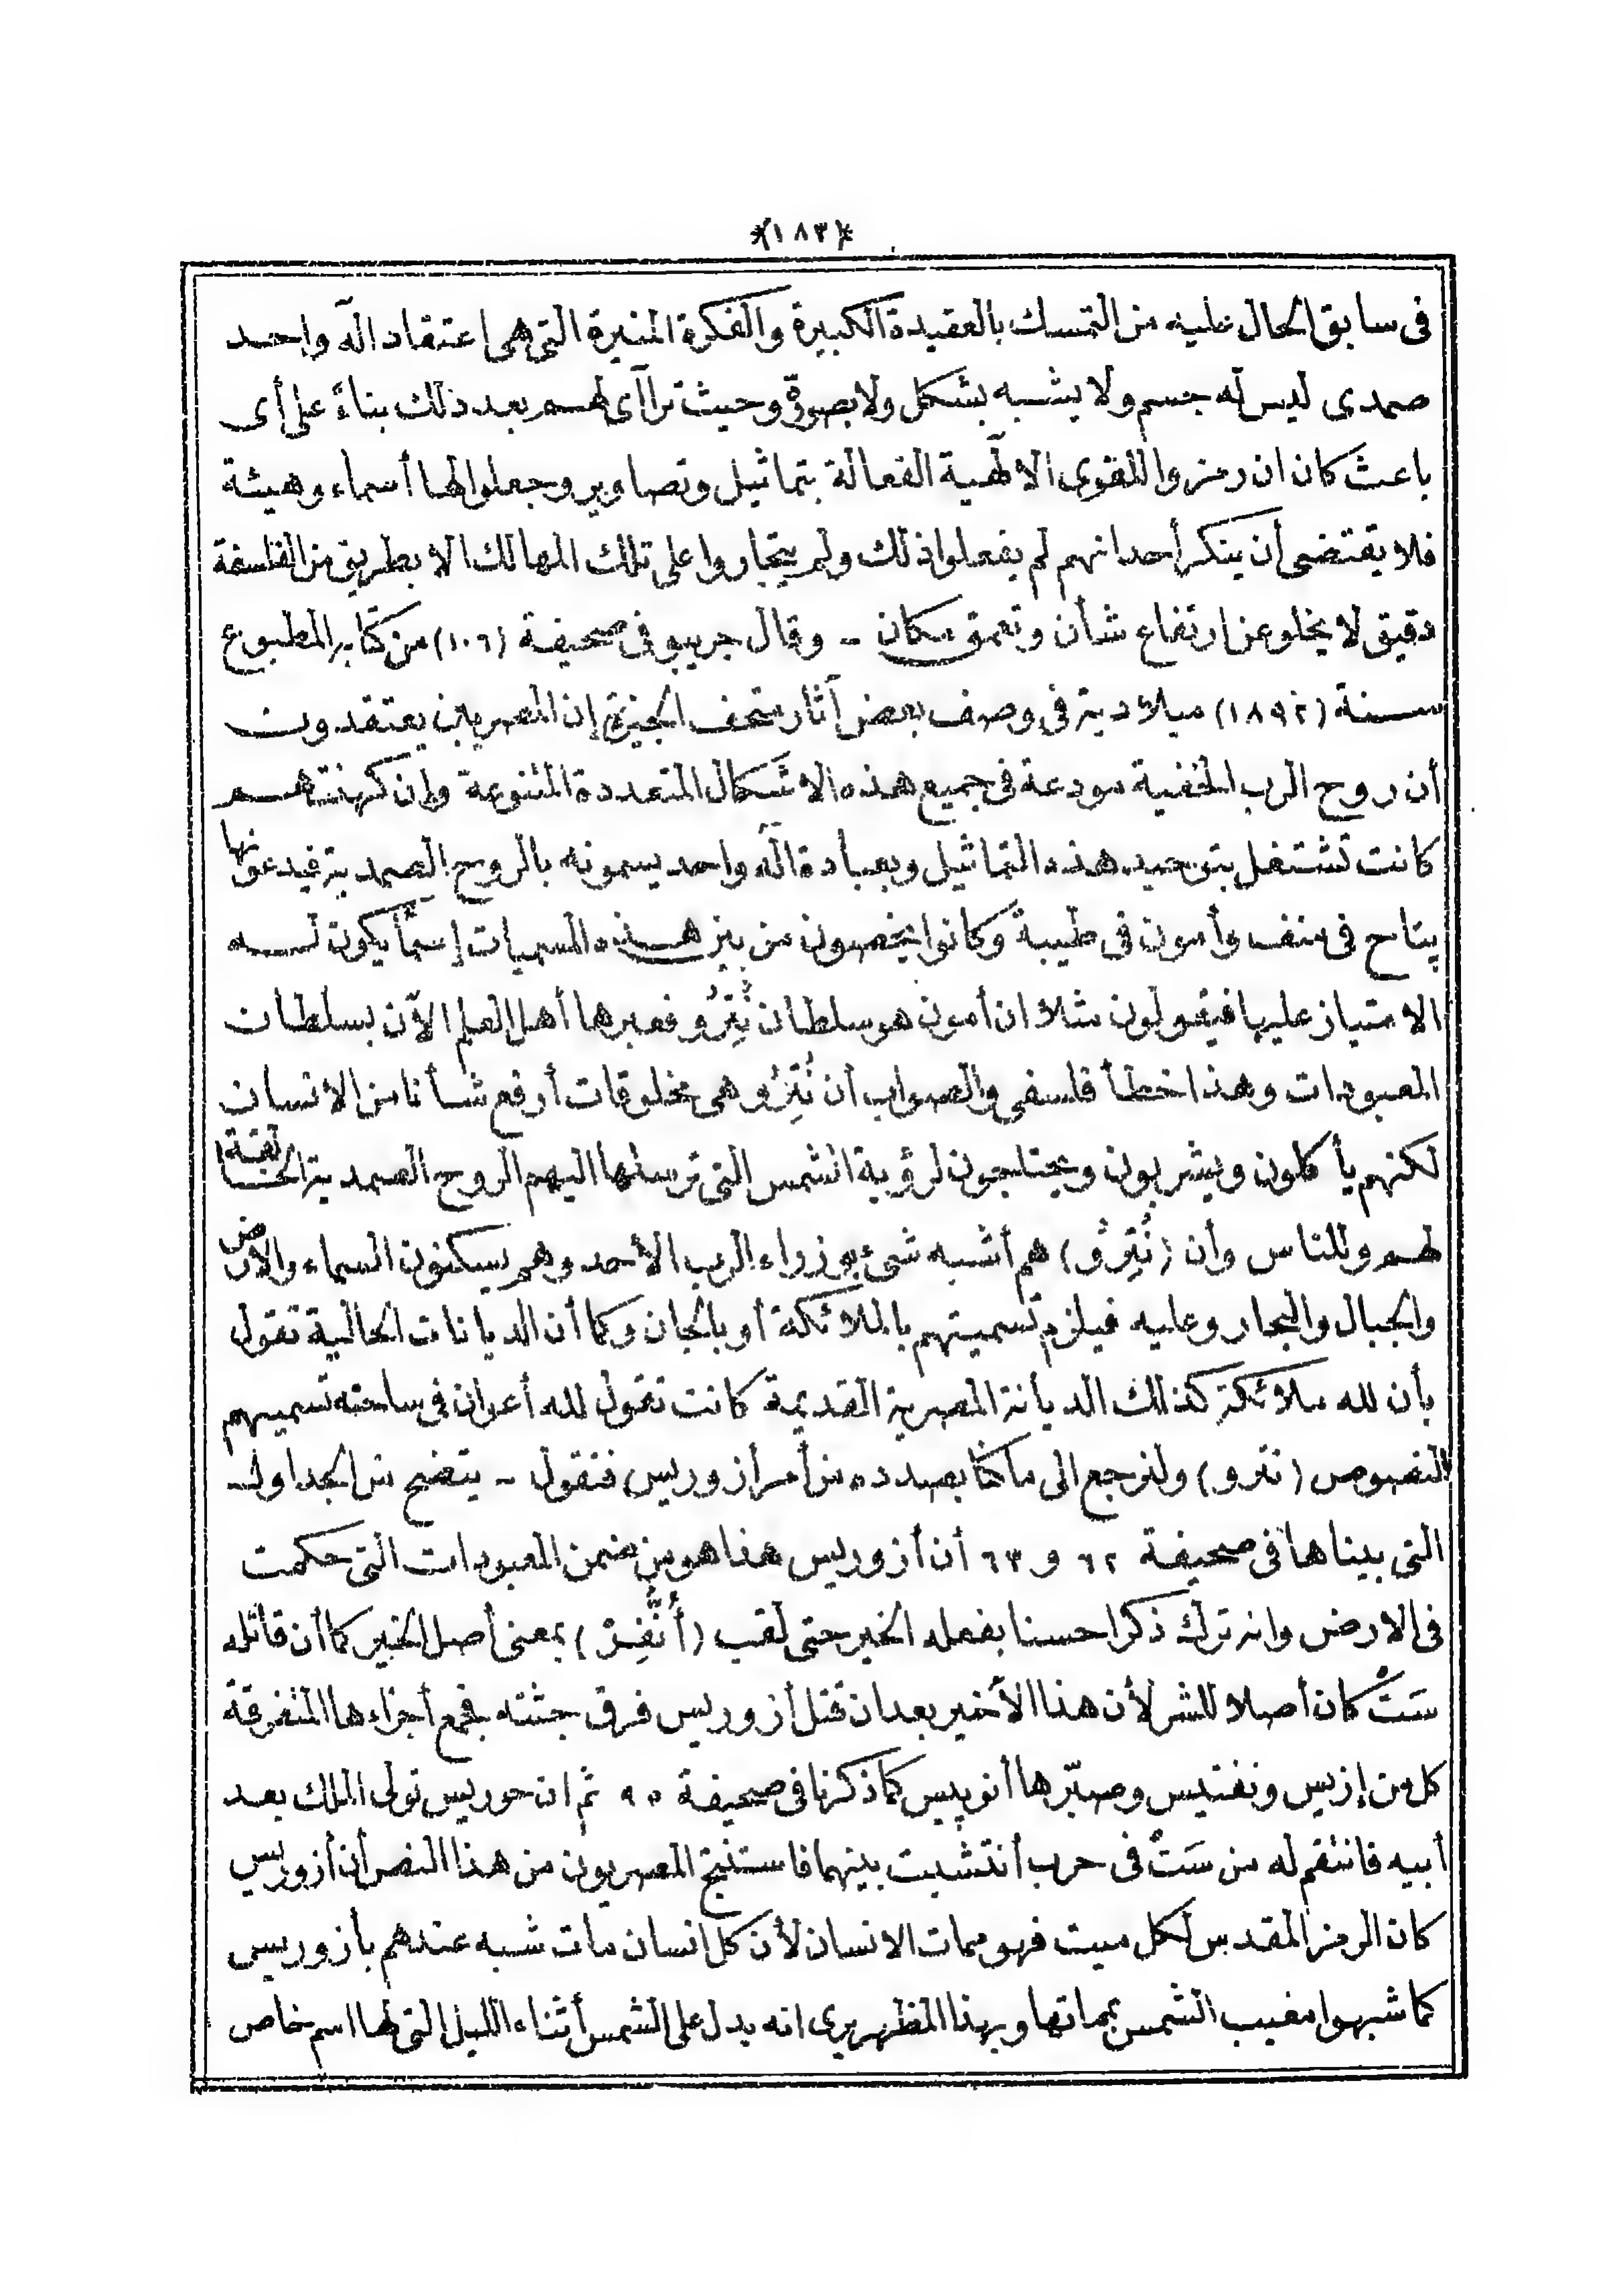 *(١٨٣)*
فى سابق الحال عليه من التمسك بالعقيدة الكبيرة والفكرة المنيرة التى هى اعتقاد اله واحد
صمدى ليس له جسم ولا يشبه بشكل ولا بصورة وحيث تراآى لهم بعد ذلك بناءً على أى
باعث كان ان رمزوا للقوى الالهية الفعالة بتماثيل وتصاوير وجعلوا لها أسماء وهيئة
فلا يقتضى أن ينكر أحد انهم لم يفعلوا ذلك ولم يتجاروا على تلك المهالك الا بطريق من الفلسفة
دقيق لا يخلو عن ارتفاع شأن وتعمق مكان - وقال جريبو فى صحيفة (١٠٦) من كتابه المطبوع
سنة (١٨٩٢) ميلادية فى وصف بعض آثار متحف الجيزة إن المصريين يعتقدون
أن روح الرب الخفية مودعة فى جميع هذه الاشكال المتعددة المتنوعة وإن كهنتهم
كانت تشتغل بتوحيد هذه التماثيل وبعبادة اله واحد يسمونه بالروح الصمدية فيدعونها
پتاح فى منف وأمون فى طيبة وكانوا يخصون من بين هذه المسميات إسماً يكون له
الامتياز عليها فيقولون مثلا ان أمون هو سلطان نُتِرُو فعبرها أهل العلم الآن بسلطان
المعبودات وهذا خطأ فلسفى والصواب أن نُتِرُو هى مخلوقات أرفع شأنا من الانسان
لكنهم يأكلون ويشربون ويحتاجون لرؤية الشمس التى ترسلها اليهم الروح الصمدية الخالقة
لهم وللناس وأن (نُتِرُو) هم أشبه شئ بوزراء الرب الأحد وهم يسكنون السماء والأرض
والجبال والبحار وعليه فيلزم تسميتهم بالملائكة أو بالجان وكما أن الديانات الحالية تقول
بأن لله ملائكة كذلك الديانة المصرية القديمة كانت تقول لله أعوان فى ساحته تسميهم
النصوص (نترو) ولنرجع الى ما كنا بصدده من أمر ازوريس فنقول - يتضح من الجداول
التى بيناها فى صحيفة ٦٢ و ٦٣ أن أزوريس هذا هو من ضمن المعبودات التى حكمت
فى الارض وانه ترك ذكرا حسنا بفعله الخير حتى لقب (أُنُّفِرْ) بمعنى أصل الخير كما أن قاتله
سَتْ كان أصلا للشر لأن هذا الأخير بعد ان قتل أزوريس فرق جثته فجمع أجزاءها المتفرقة
كل من إزيس ونفتيس وصبّرها أنوپيس كما ذكرنا فى صحيفة ٩٥ ثم ان حوريس تولى الملك بعد
أبيه فانتقم له من سَتْ فى حرب أنتشبت بينهما فاستنتج المصريون من هذا النص أن أزوريس
كان الرمز المقدس لكل ميت فهو ممات الانسان لأن كل انسان مات شبه عندهم بأزوريس
كما شبهوا مغيب الشمس بمماتها وبهذا المظهر يرى انه يدل على الشمس أثناء الليل التى لها اسم خاص